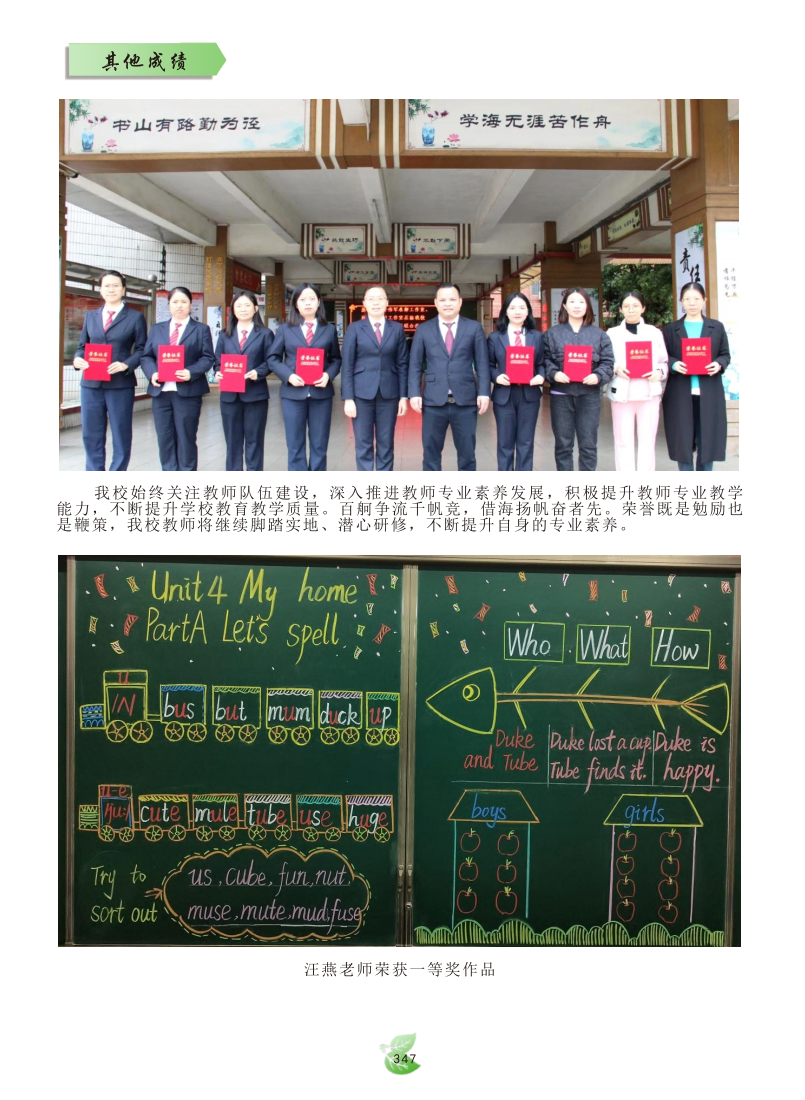 其他成绩
书山有路勤为径
学海无涯苦作舟
责任
荣誉证书
荣誉证书
荣誉证书
荣誉证书
荣誉证书
荣誉证书
荣誉证书
荣誉证书
我校始终关注教师队伍建设，深入推进教师专业素养发展，积极提升教师专业教学
能力，不断提升学校教育教学质量。百舸争流千帆竞，借海扬帆奋者先。荣誉既是勉励也
是鞭策，我校教师将继续脚踏实地、潜心研修，不断提升自身的专业素养。
Unit 4 My home
Part A Let's spell
u
/ʌ/ bus but mum duck up
u-e
/ju:/ cute mule tube use huge
Try to
sort out
us, cube, fun, nut,
muse, mute, mud, fuse
Who What How
Duke
and Tube
Duke lost a cup.
Tube finds it.
Duke is
happy.
boys girls
汪燕老师荣获一等奖作品
347